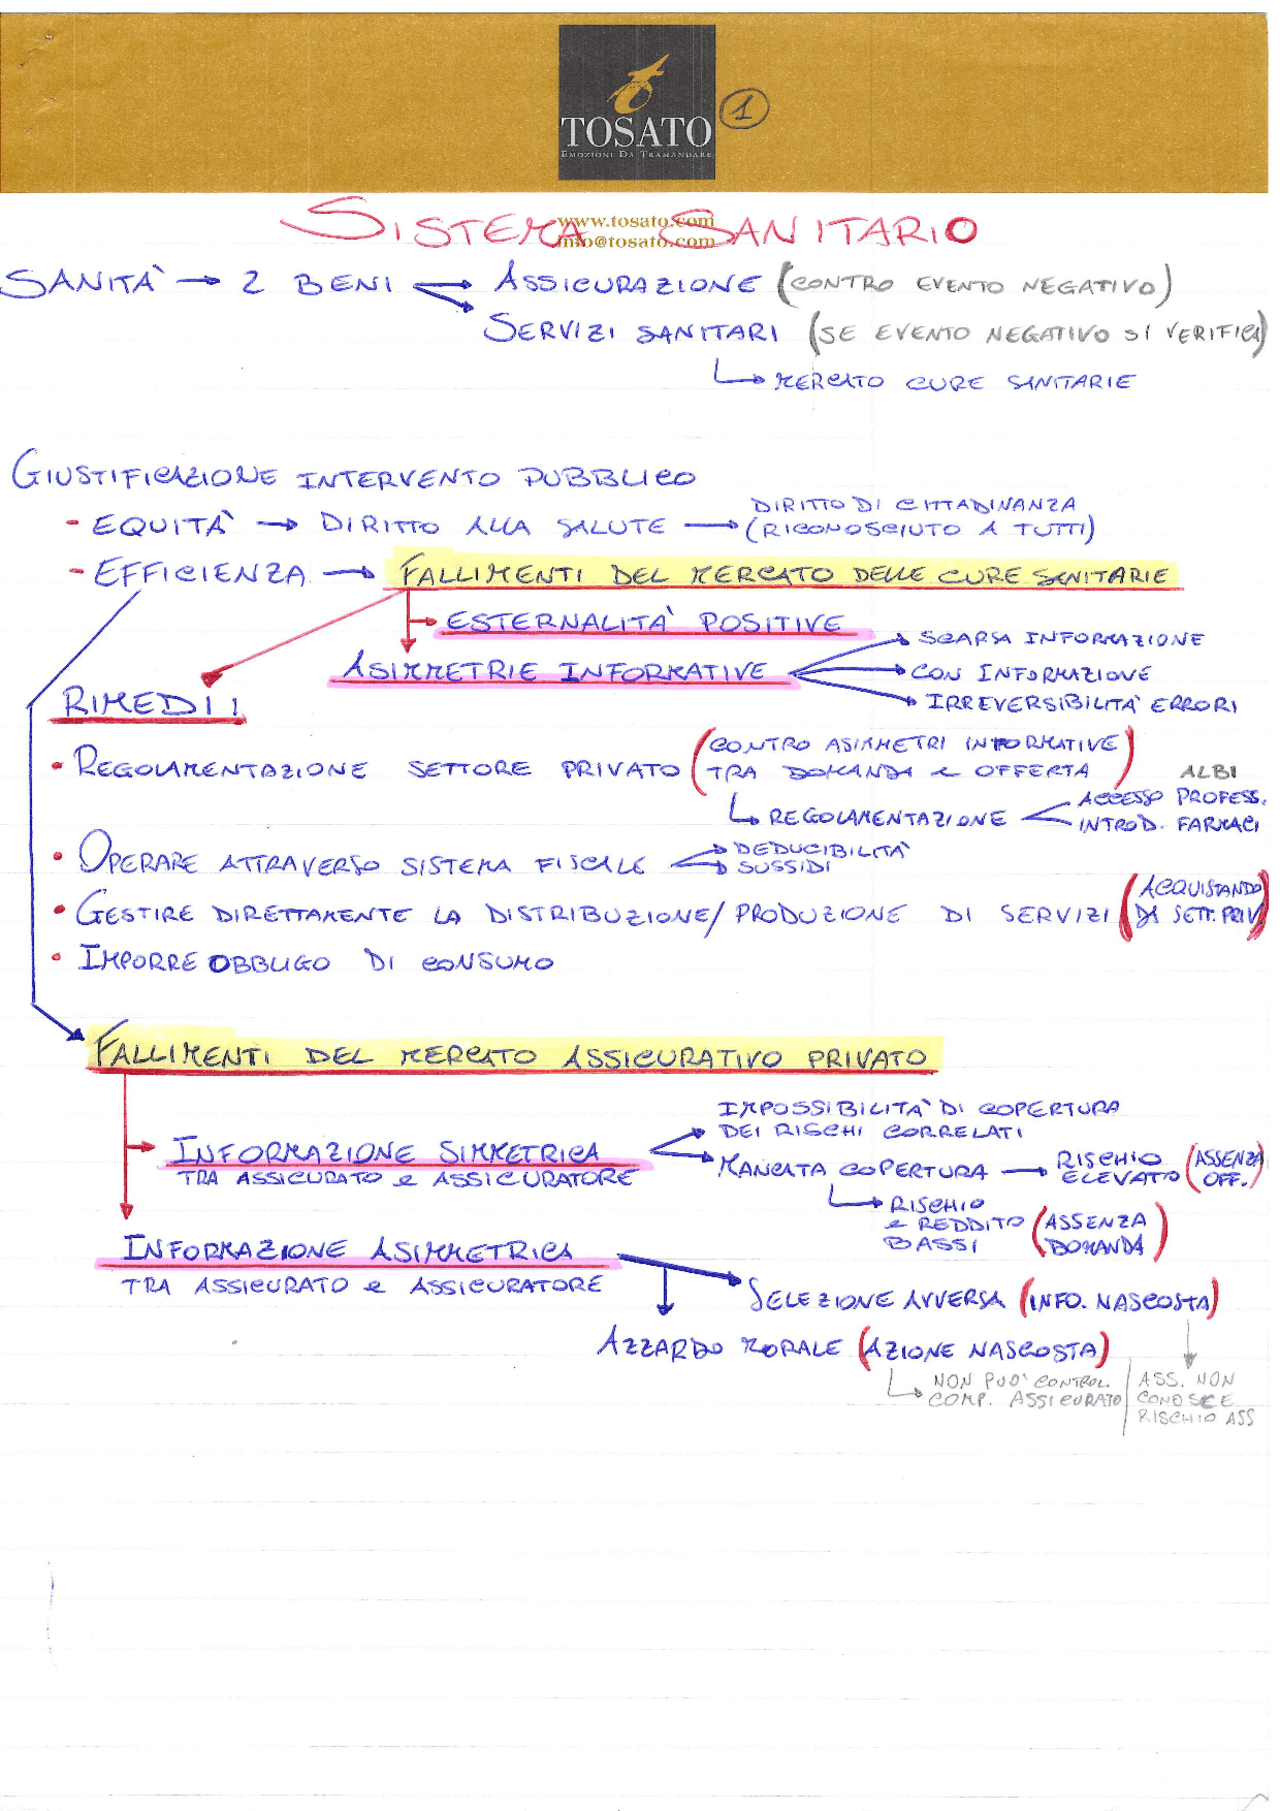 TOSATO
EMOZIONI DA TRAMANDARE
1
www.tosato.com
info@tosato.com
SISTEMA SANITARIO
SANITÀ → 2 BENI
ASSICURAZIONE (CONTRO EVENTO NEGATIVO)
SERVIZI SANITARI (SE EVENTO NEGATIVO SI VERIFICA)
MERCATO CURE SANITARIE
GIUSTIFICAZIONE INTERVENTO PUBBLICO
- EQUITÀ → DIRITTO ALLA SALUTE → DIRITTO DI CITTADINANZA
(RICONOSCIUTO A TUTTI)
- EFFICIENZA → FALLIMENTI DEL MERCATO DELLE CURE SANITARIE
ESTERNALITÀ POSITIVE
ASIMMETRIE INFORMATIVE
SCARSA INFORMAZIONE
CON INFORMAZIONE
IRREVERSIBILITÀ ERRORI
RIMEDI:
• REGOLAMENTAZIONE SETTORE PRIVATO (CONTRO ASIMMETRI INFORMATIVE
TRA DOMANDA e OFFERTA)
REGOLAMENTAZIONE
ALBI
ACCESSO PROFESS.
INTROD. FARMACI
• OPERARE ATTRAVERSO SISTEMA FISCALE
DEDUCIBILITÀ
SUSSIDI
• GESTIRE DIRETTAMENTE LA DISTRIBUZIONE/PRODUZIONE DI SERVIZI (ACQUISTANDO
DA SETT. PRIV)
• IMPORRE OBBLIGO DI CONSUMO
FALLIMENTI DEL MERCATO ASSICURATIVO PRIVATO
INFORMAZIONE SIMMETRICA
TRA ASSICURATO e ASSICURATORE
IMPOSSIBILITÀ DI COPERTURA
DEI RISCHI CORRELATI
MANCATA COPERTURA → RISCHIO
ELEVATO (ASSENZA
OFF.)
RISCHIO
e REDDITO
BASSI (ASSENZA
DOMANDA)
INFORMAZIONE ASIMMETRICA
TRA ASSICURATO e ASSICURATORE
SELEZIONE AVVERSA (INFO. NASCOSTA)
AZZARDO MORALE (AZIONE NASCOSTA)
NON PUO' CONTROL.
COMP. ASSICURATO
ASS. NON
CONOSCE
RISCHIO ASS